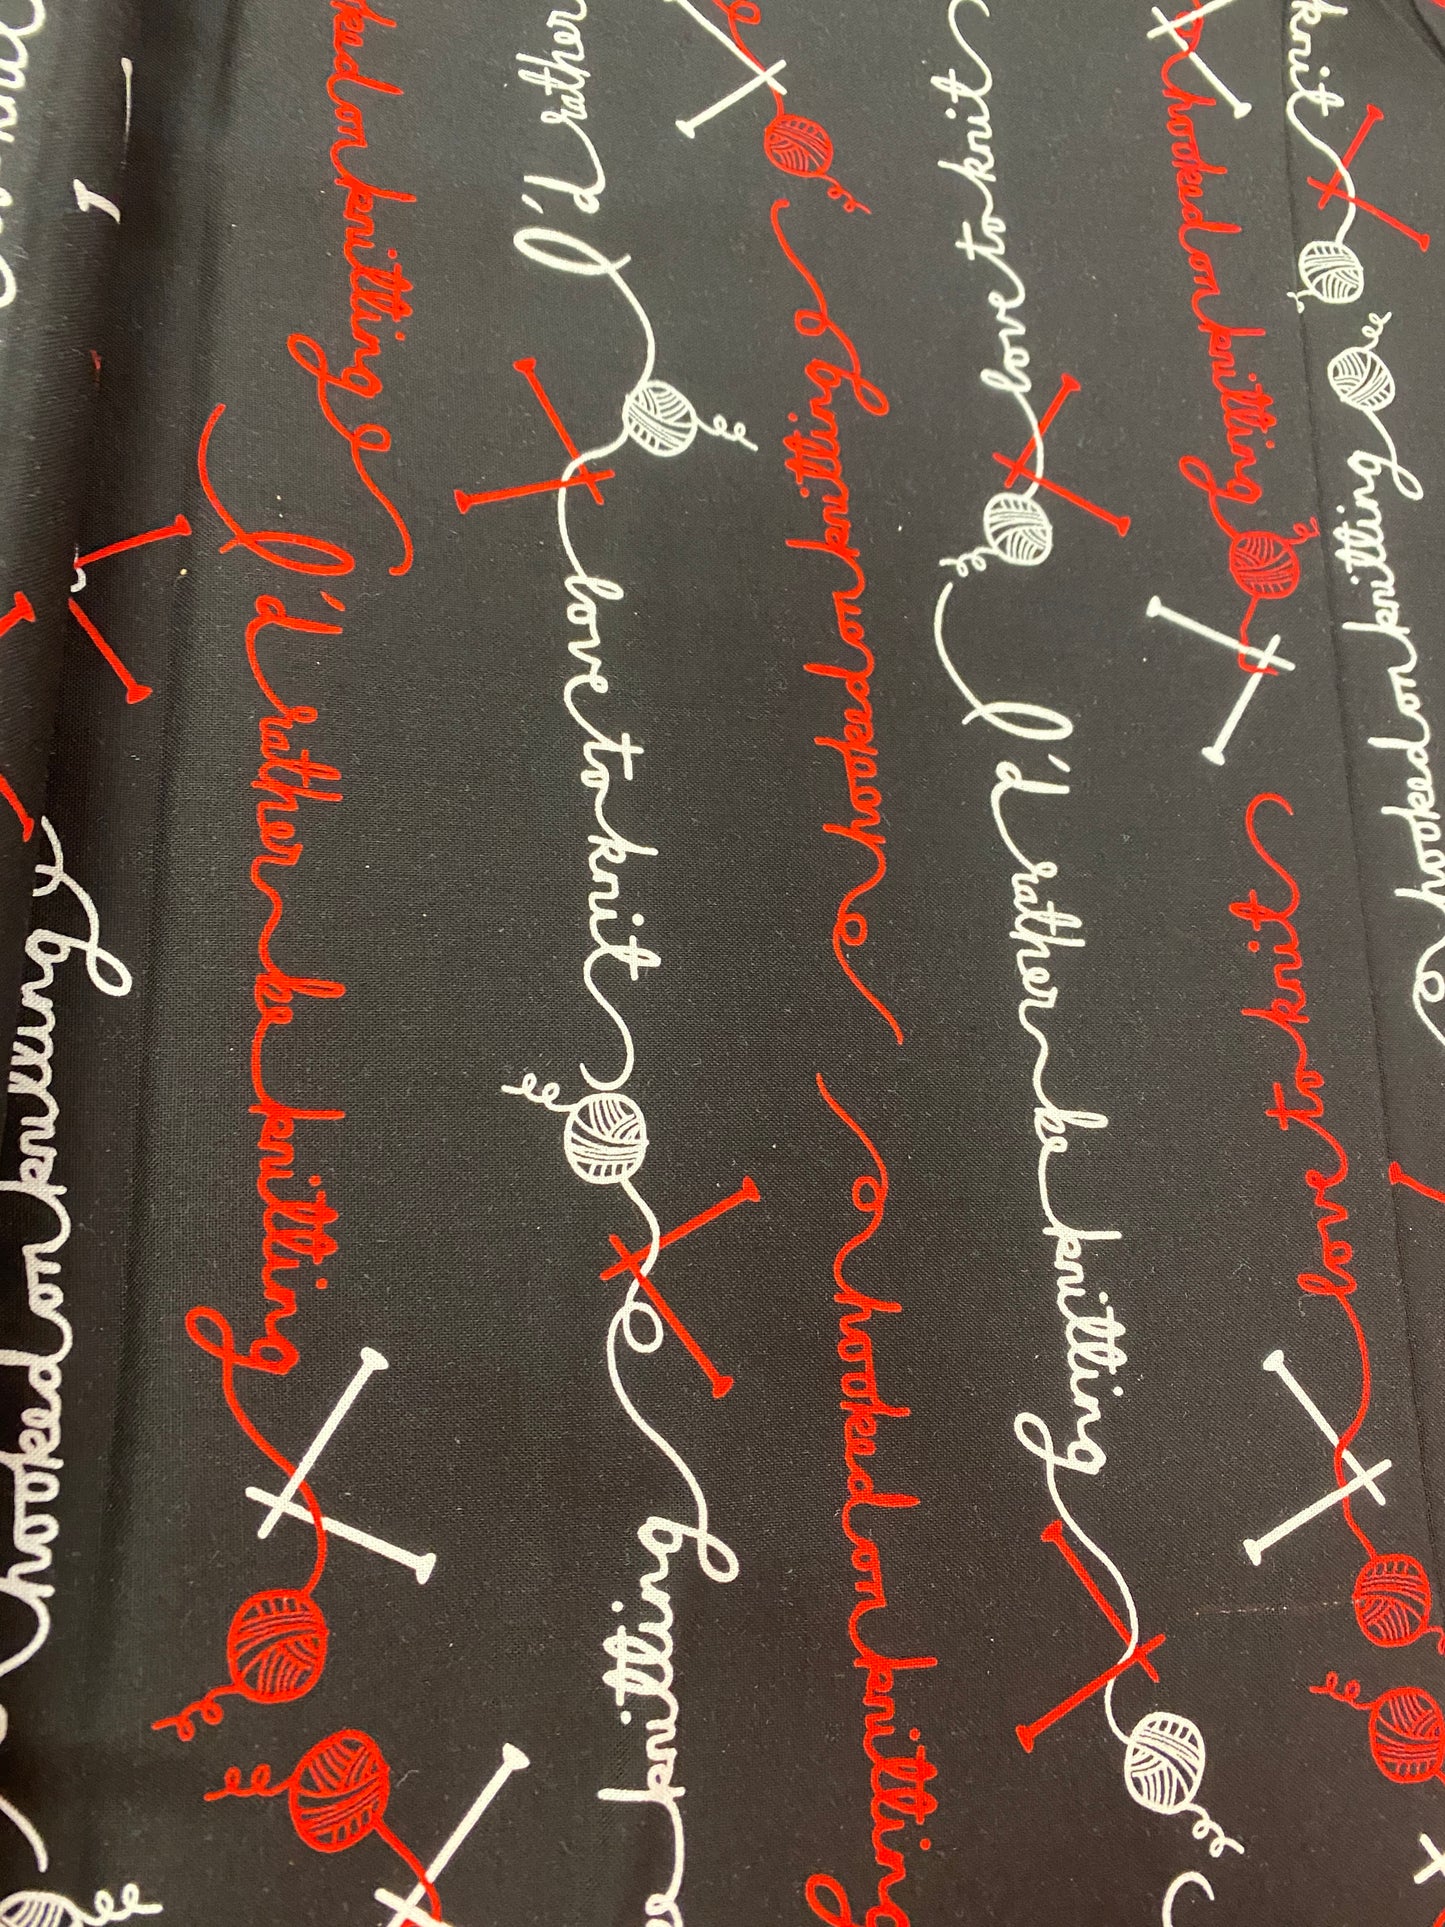 hooked on knitting
ked on knitting
I'd rather be knitting
I'd rather
love to knit
knitting
hooked on knitting
hooked on knitting
love to knit
I'd rather be knitting
hooked on knitting
love to knit
knit
hooked on knitting